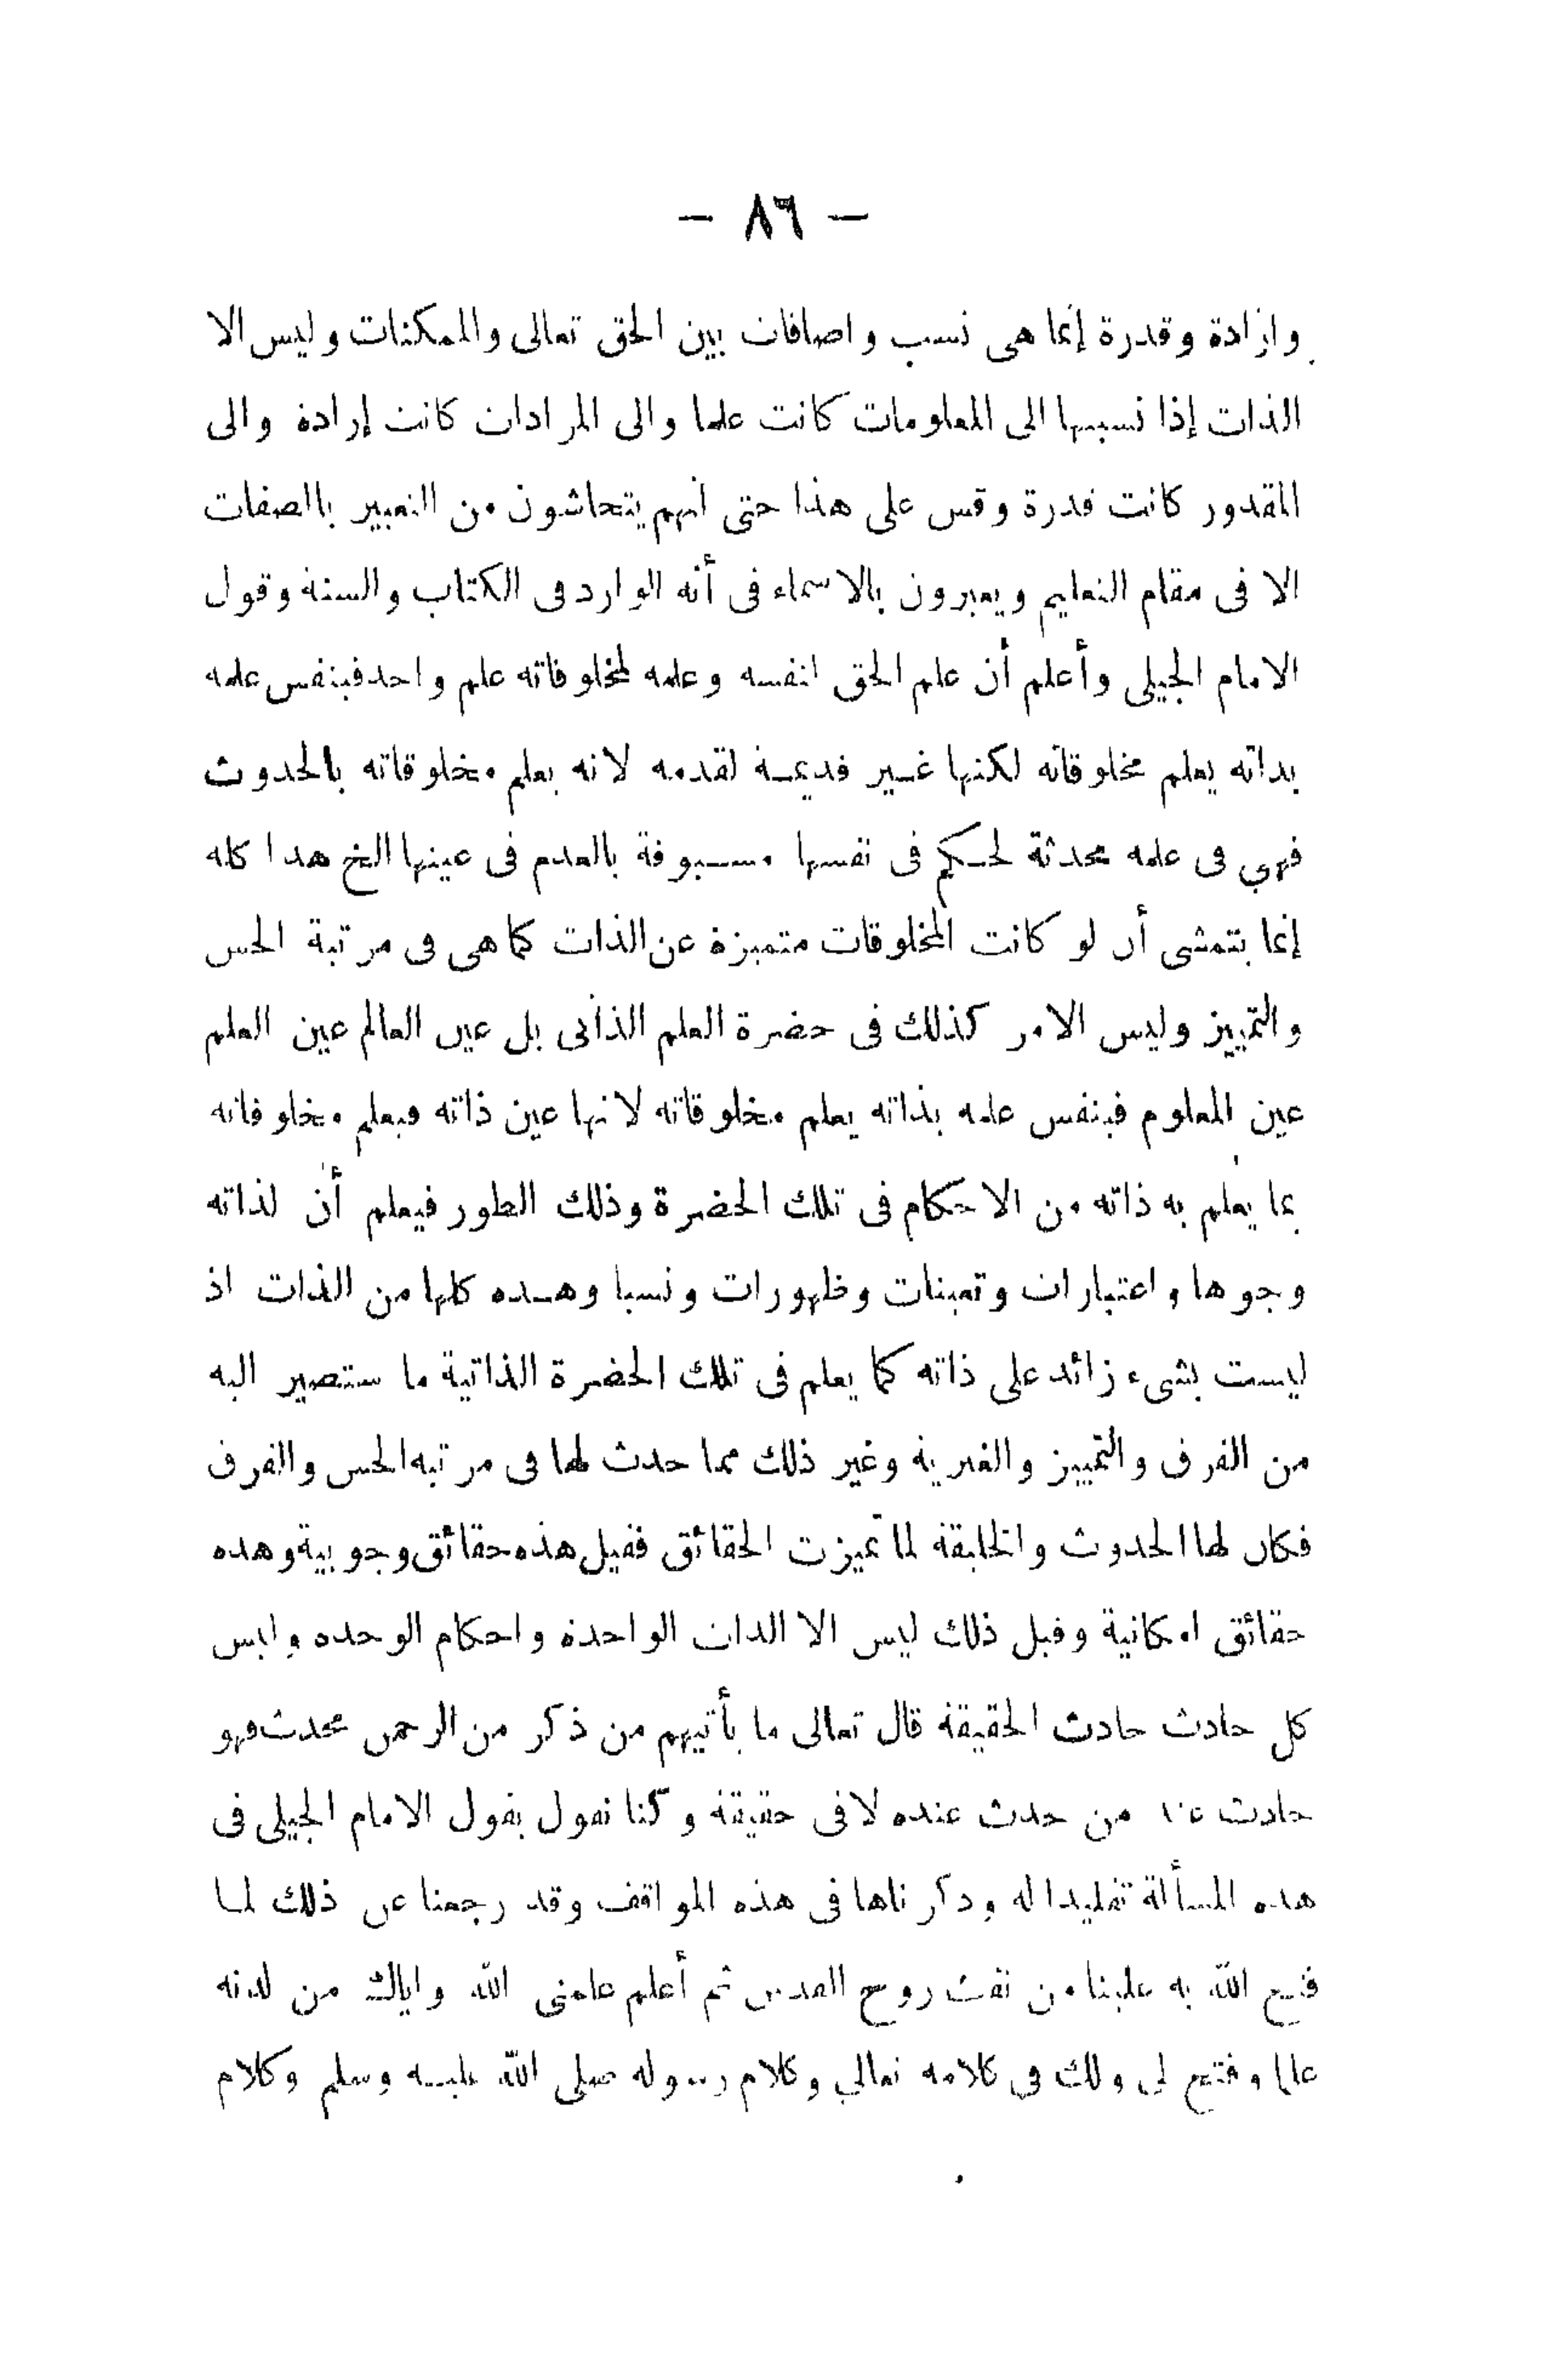 — ٨٦ —
وارادة وقدرة إنما هى نسب واضافات بين الحق تعالى والممكنات وليس الا
الذات إذا نسبتها الى المعلومات كانت علما والى المرادات كانت إرادة والى
المقدور كانت قدرة وقس على هذا حتى انهم يتحاشون من التعبير باالصفات
الا فى مقام التعليم ويعبرون بالاسماء فى أنه الوارد فى الكتاب والسنة وقول
الامام الجيلى وأعلم أن علم الحق لنفسه وعلمه لمخلوقاته علم واحد فبنفس علمه
بذاته يعلم مخلوقاته لكنها غير قديمة لقدمه لانه يعلم مخلوقاته بالحدوث
فهي فى علمه محدثة لحكم فى نفسها مسبوقة بالعدم فى عينها الخ هذا كله
إنما يتمشى أن لو كانت المخلوقات متميزة عن الذات كما هى فى مرتبة الحس
والتمييز وليس الامر كذلك فى حضرة العلم الذاتى بل عين العالم عين العلم
عين المعلوم فبنفس علمه بذاته يعلم مخلوقاته لانها عين ذاته فيعلم مخلوقاته
بما يعلم به ذاته من الاحكام فى تلك الحضرة وذلك الطور فيعلم أن لذاته
وجوها واعتبارات وتعينات وظهورات ونسبا وهذه كلها من الذات اذ
ليست بشىء زائد على ذاته كما يعلم فى تلك الحضرة الذاتية ما ستصير اليه
من الفرق والتمييز والغيرية وغير ذلك مما حدث لها فى مرتبة الحس والفرق
فكان لها الحدوث والخليقة لما تميزت الحقائق فقيل هذه حقائق وجوبية وهذه
حقائق امكانية وقبل ذلك ليس الا الذات الواحدة واحكام الوحده وليس
كل حادث حادث الحقيقة قال تعالى ما يأتيهم من ذكر من الرحمن محدث فهو
حادث عند من حدث عنده لا فى حقيقة وكنا نقول بقول الامام الجيلى فى
هذه المسألة تقليدا له وذكرناها فى هذه المواقف وقد رجعنا عن ذلك لما
فتح الله به علينا من نفث روح القدس ثم أعلم علمنى الله واياك من لدنه
علما وفتح لى ولك فى كلامه تعالي وكلام رسوله صلى الله عليه وسلم وكلام